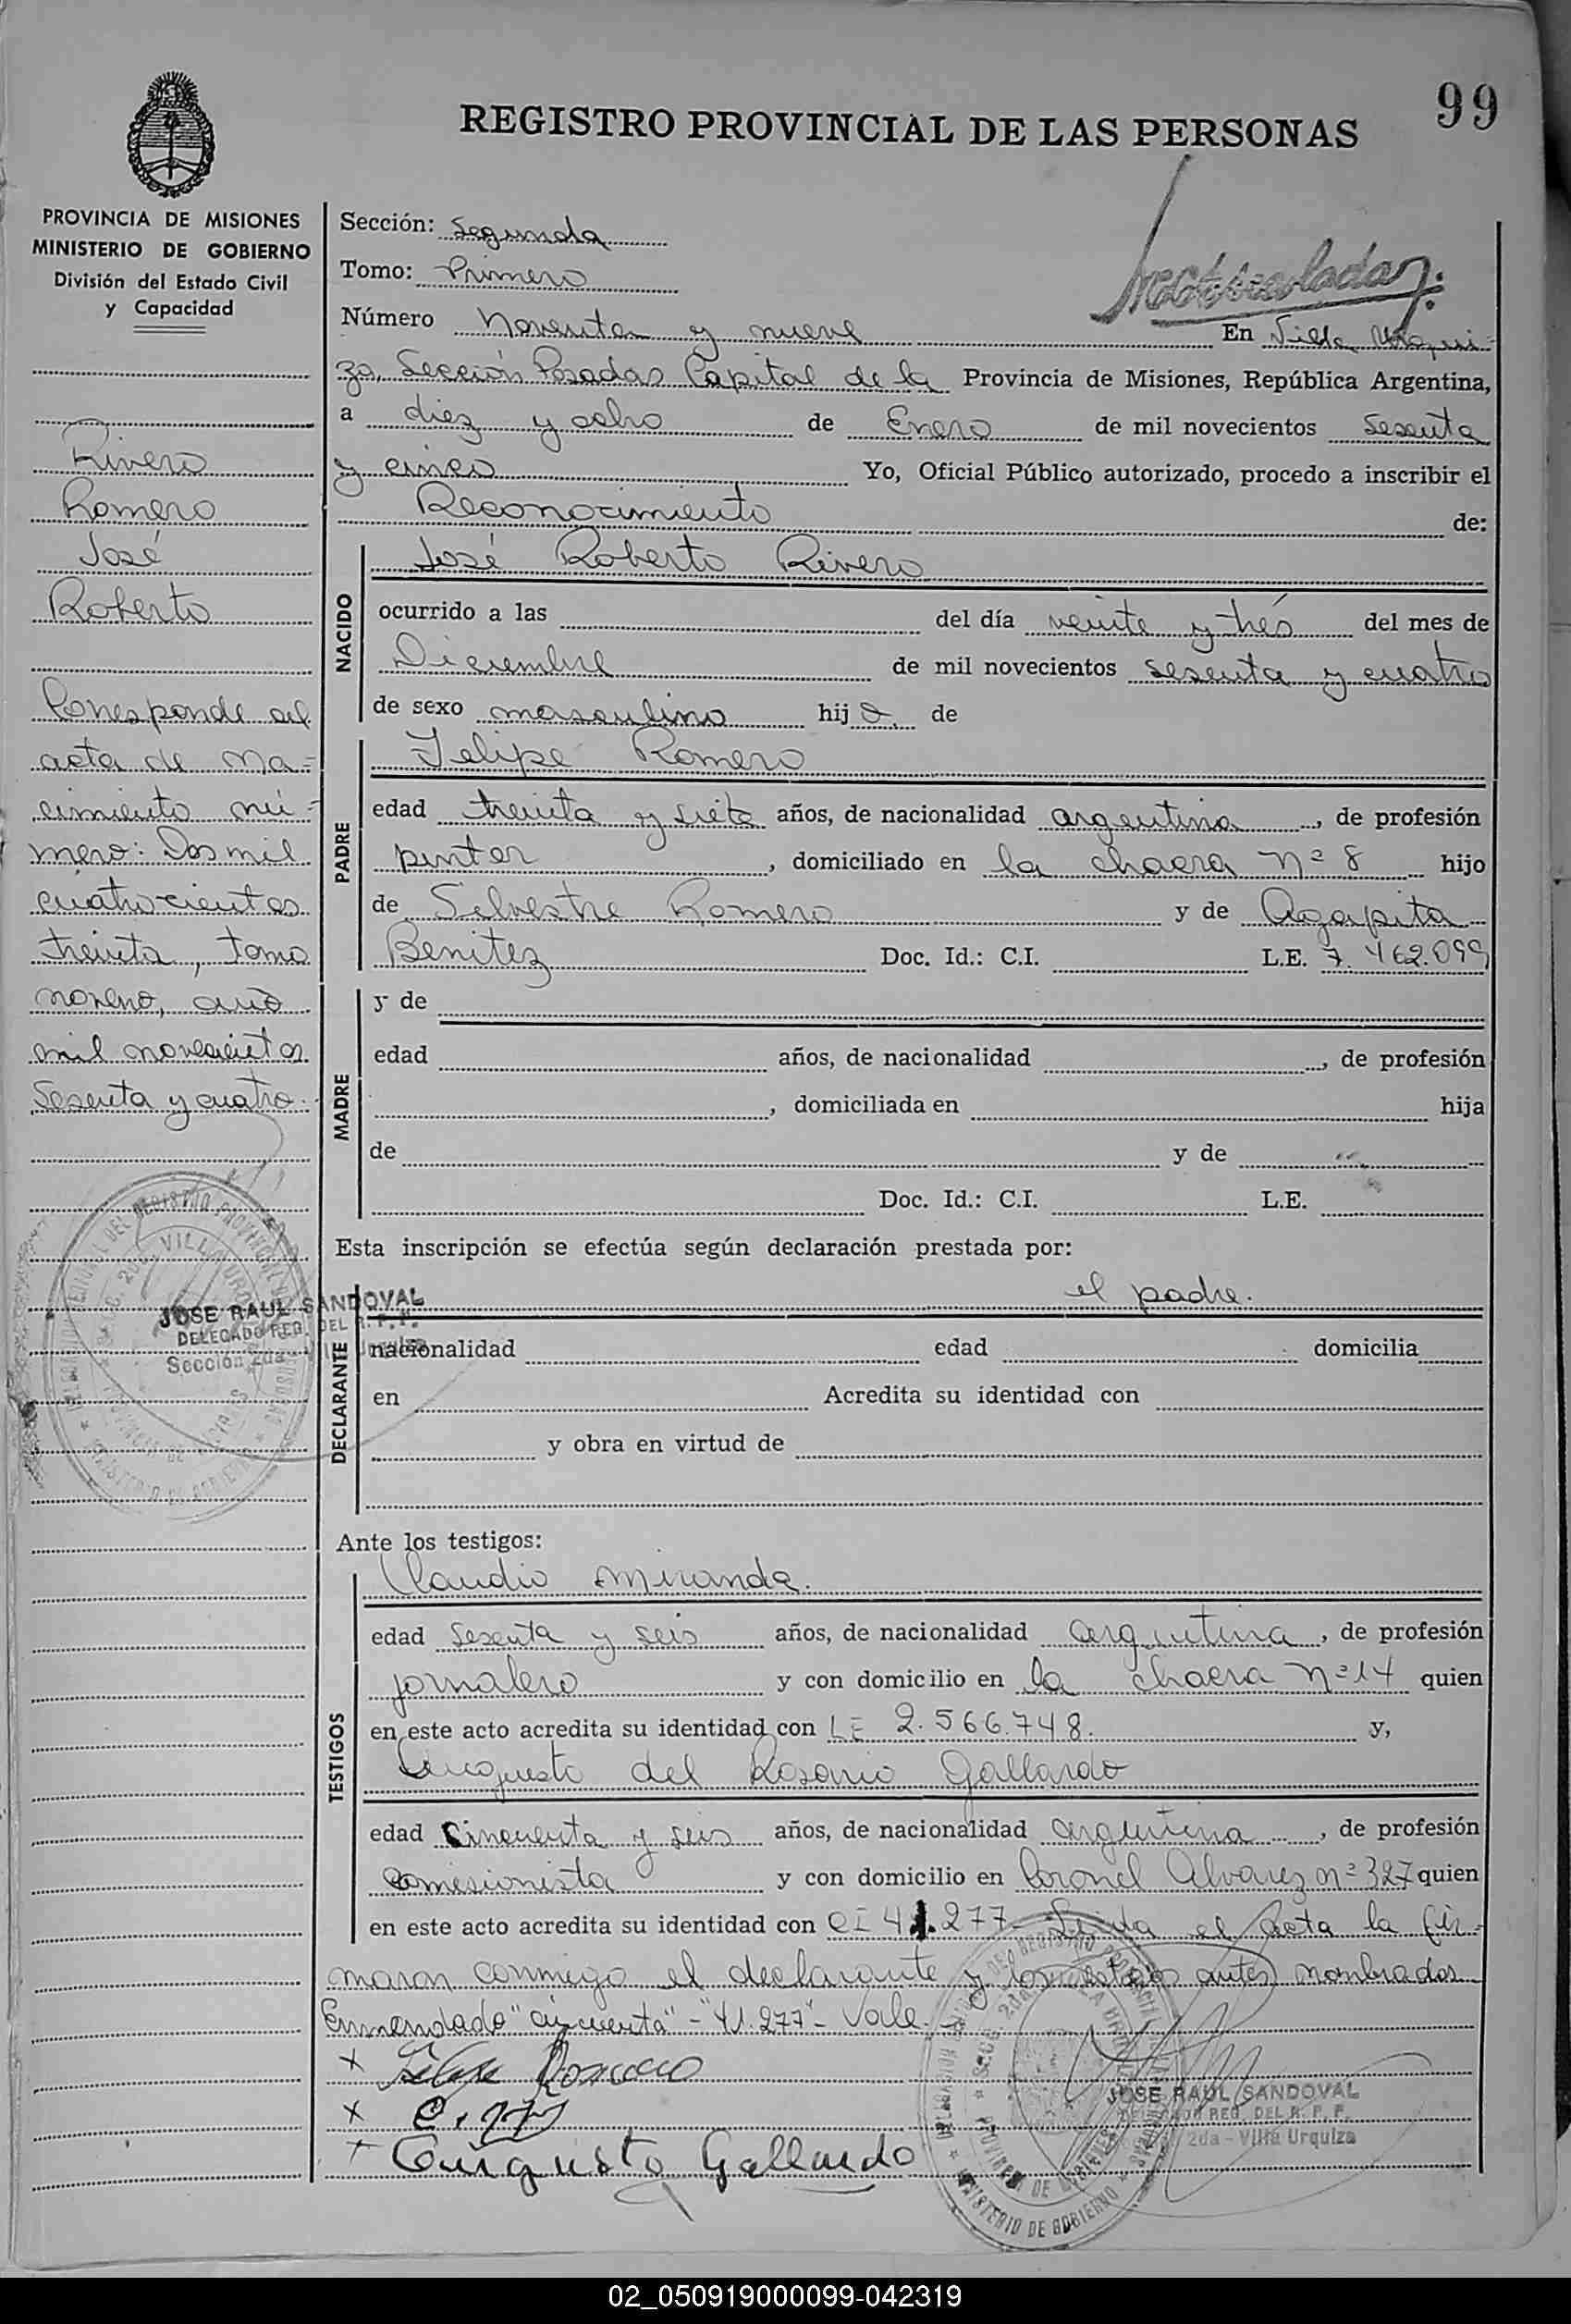 99
REGISTRO PROVINCIAL DE LAS PERSONAS
PROVINCIA DE MISIONES
MINISTERIO DE GOBIERNO
División del Estado Civil
y Capacidad
Rivero
Romero
José
Roberto
Corresponde al
acta de na=
cimiento nú=
mero: Dos mil
cuatrocientos
treinta, tomo
noveno, año
mil novecientos
sesenta y cuatro.
JOSE RAUL SANDOVAL
DELEGADO REG. DEL R. P. P.
Sección 2da - Villa Urquiza
Sección: Segunda
Tomo: Primero
Número Noventa y nueve En Villa Urqui=
za, Sección Posadas Capital de la Provincia de Misiones, República Argentina,
a diez y ocho de Enero de mil novecientos sesenta
y cinco Yo, Oficial Público autorizado, procedo a inscribir el
Reconocimiento de:
NACIDO
José Roberto Rivero
ocurrido a las del día veinte y trés del mes de
Diciembre de mil novecientos sesenta y cuatro
de sexo masculino hijo de
PADRE
Felipe Romero
edad treinta y siete años, de nacionalidad argentina, de profesión
pintor, domiciliado en la chacra nº 8 hijo
de Silvestre Romero y de Agapita
Benitez Doc. Id.: C.I. L.E. 7.462.099
MADRE
y de
edad años, de nacionalidad , de profesión
, domiciliada en hija
de y de
Doc. Id.: C.I. L.E.
Esta inscripción se efectúa según declaración prestada por:
DECLARANTE
el padre.
nacionalidad edad domicilia
en Acredita su identidad con
y obra en virtud de
Ante los testigos:
TESTIGOS
Claudio Miranda.
edad sesenta y seis años, de nacionalidad argentina, de profesión
jornalero y con domicilio en la chacra nº 14 quien
en este acto acredita su identidad con LE 2.566.748. y,
Augusto del Rosario Gallardo
edad Cincuenta y seis años, de nacionalidad argentina, de profesión
comisionista y con domicilio en Coronel Alvarez nº 327 quien
en este acto acredita su identidad con CI 41.277- Leída el acta la fir=
maron conmigo el declarante y los testigos antes nombrados
Enmendado "cincuenta" - "41.277" - Vale.
x Felipe Romero
x
x Augusto Gallardo
JOSE RAUL SANDOVAL
DELEGADO REG. DEL R. P. P.
2da - Villa Urquiza
02_050919000099-042319